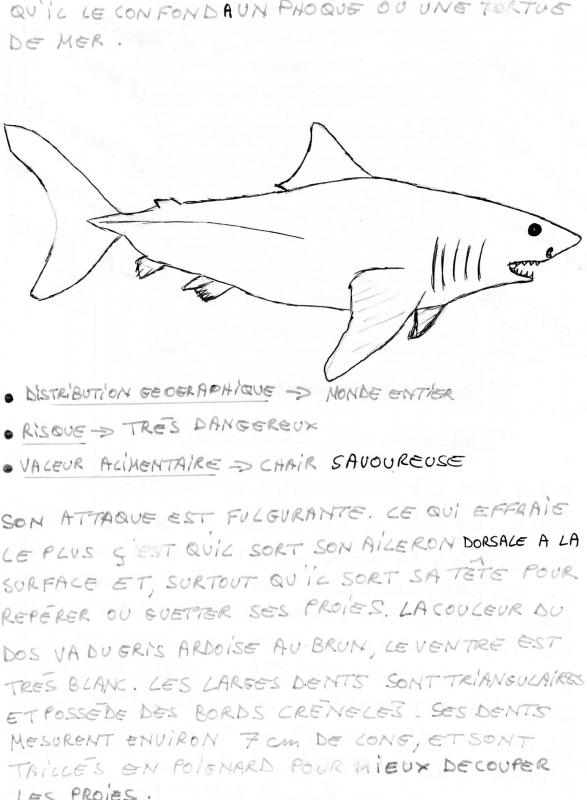 QU'IL LE CONFOND A UN PHOQUE OU UNE TORTUE
DE MER.
• DISTRIBUTION GEOGRAPHIQUE → MONDE ENTIER
• RISQUE → TRÈS DANGEREUX
• VALEUR ALIMENTAIRE → CHAIR SAVOUREUSE
SON ATTAQUE EST FULGURANTE. CE QUI EFFRAIE
LE PLUS Ç'EST QUIL SORT SON AILERON DORSALE A LA
SURFACE ET, SURTOUT QU'IL SORT SA TÊTE POUR
REPÉRER OU GUETTER SES PROIES. LA COULEUR DU
DOS VA DU GRIS ARDOISE AU BRUN, LE VENTRE EST
TRÈS BLANC. LES LARGES DENTS SONT TRIANGULAIRES
ET POSSÈDE DES BORDS CRÉNELÉS. SES DENTS
MESURENT ENVIRON 7 cm DE LONG, ET SONT
TAILLÉS EN POIGNARD POUR MIEUX DECOUPER
LES PROIES.